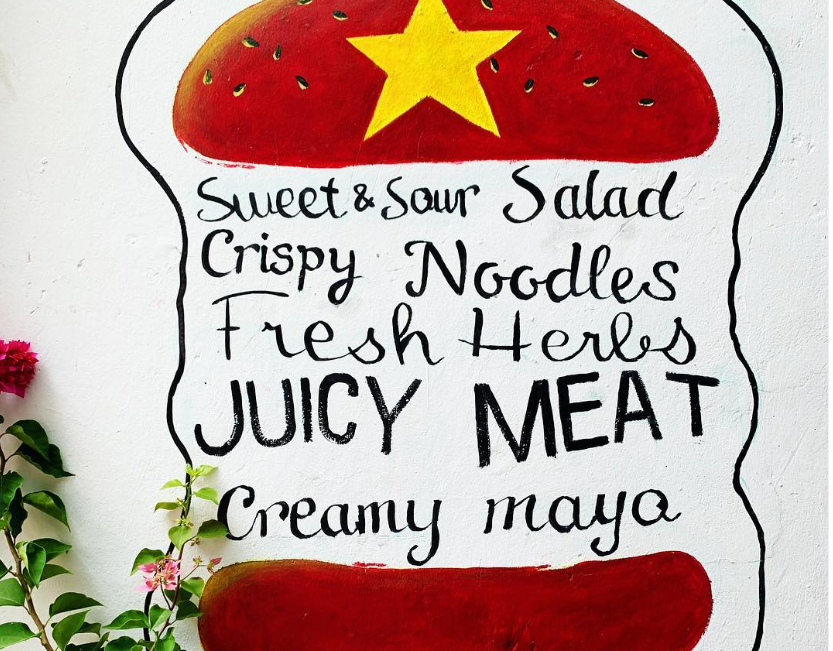 Sweet & Sour Salad
Crispy Noodles
Fresh Herbs
JUICY MEAT
Creamy mayo